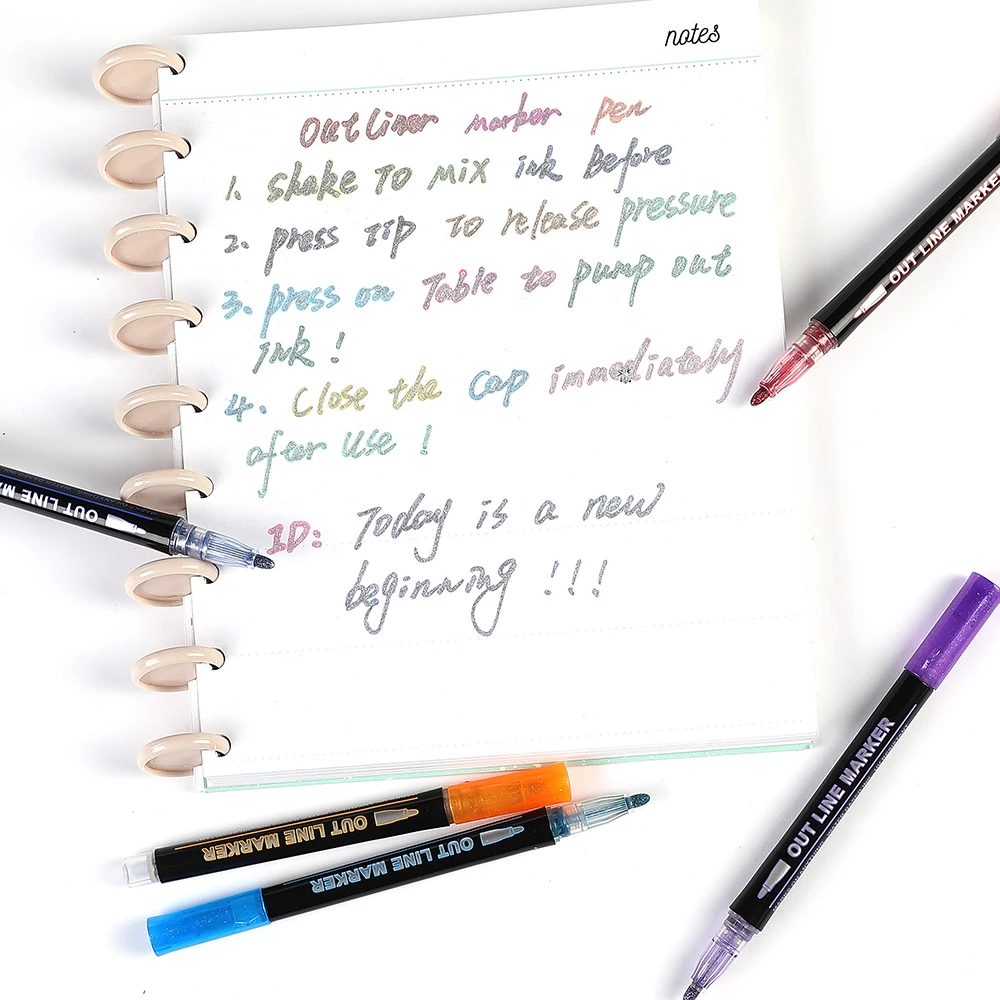 notes
Outliner marker Pen
1. shake To Mix ink Before
2. press Tip To release pressure
3. press on Table to pump out
ink !
4. Close the cap immediately
after Use !
ID: Today is a new
beginning !!!
OUT LINE MARKER
OUT LINE MA
OUT LINE MARKER
OUT LINE MARKER
OUT LINE MARKER